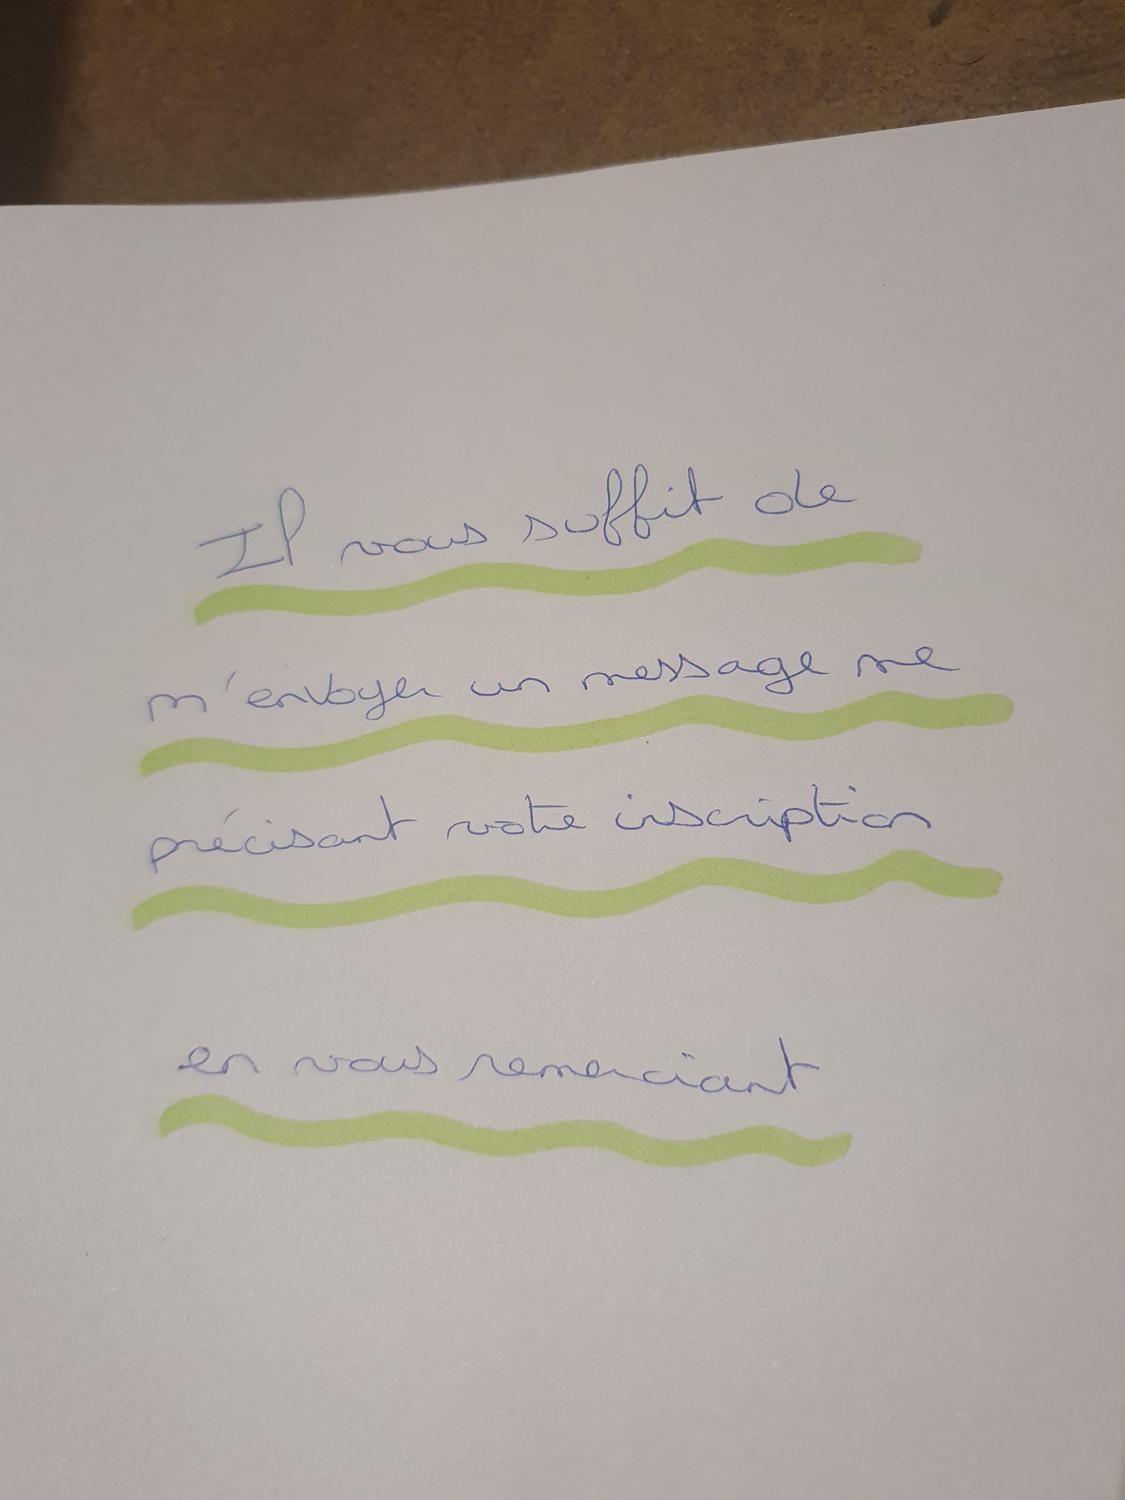 Il vous suffit de
m'envoyer un message me
précisant votre inscription
en vous remerciant